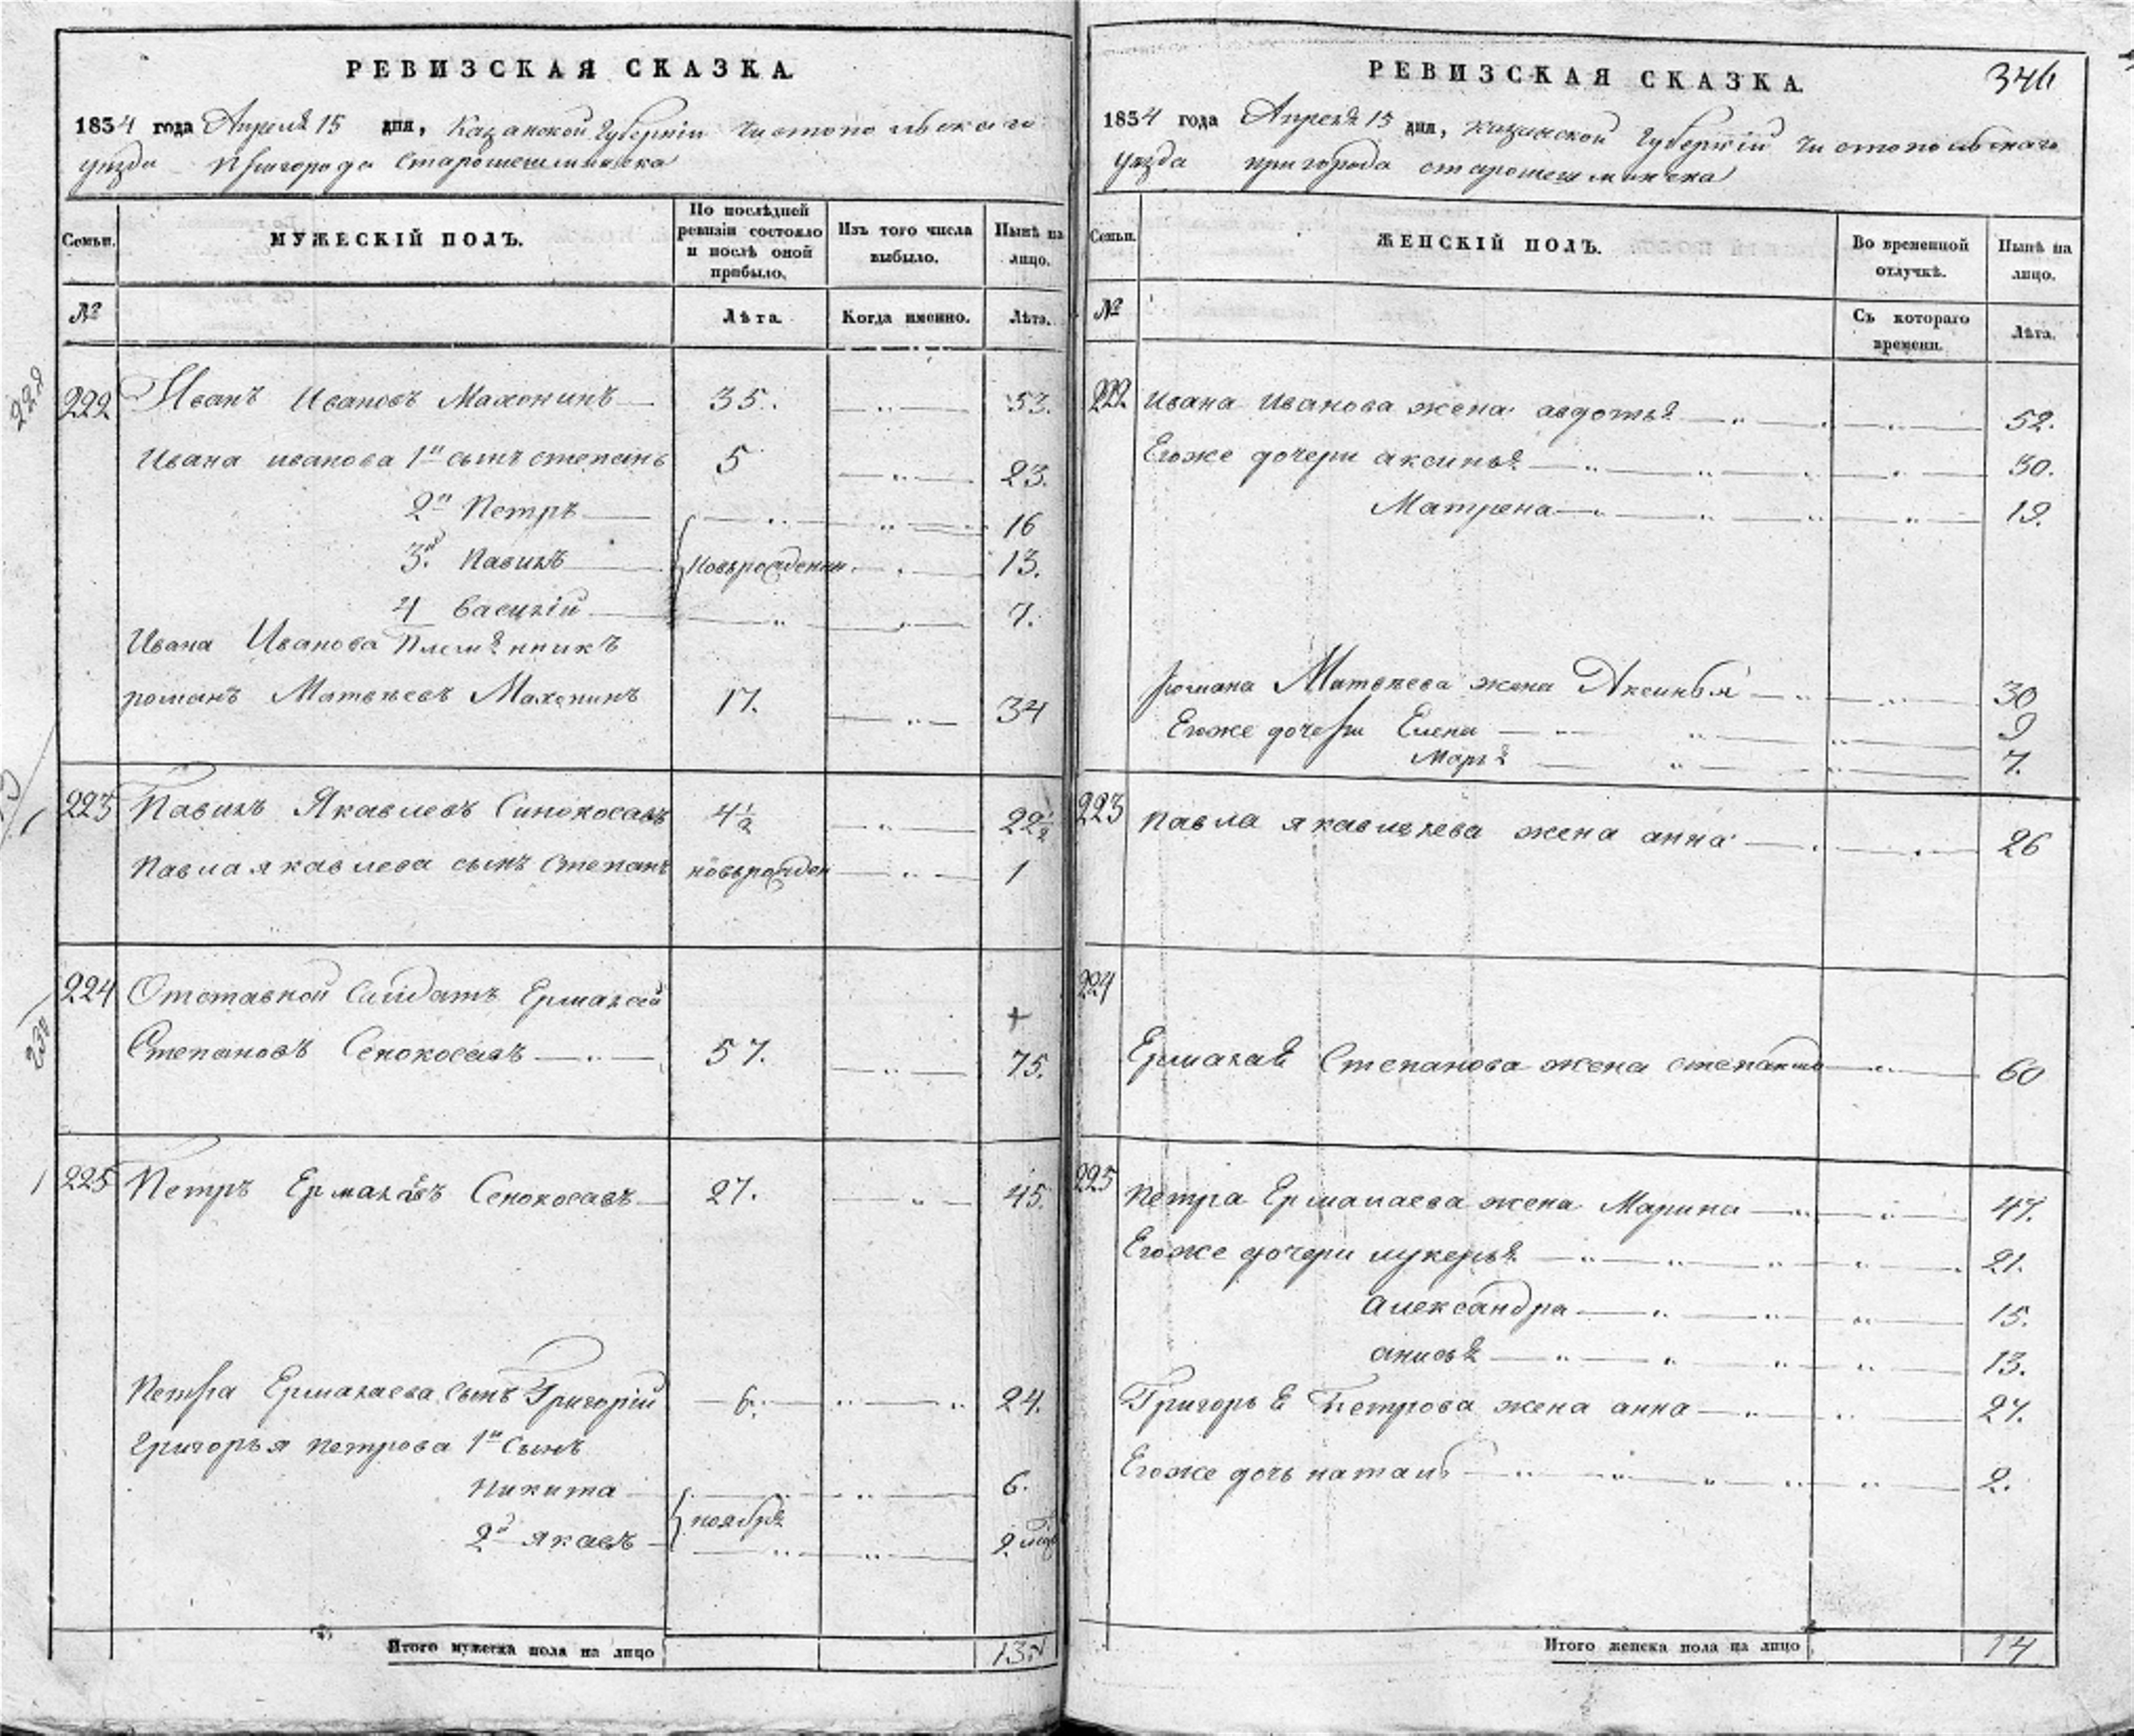 РЕВИЗСКАЯ СКАЗКА.
1854 года Апреля 15 дня, Казанской Губернiи Чистопольскаго
уезда Пригорода Старошешминска
Семьи.
МУЖЕСКІЙ ПОЛЪ.
По послѣдней ревизіи состояло и послѣ оной прибыло.
Изъ того числа выбыло.
Нынѣ на лицо.
№
Лѣта.
Когда именно.
Лѣта.
222 Иванъ Ивановъ Махонинъ 35. 53.
Ивана иванова 1й сынъ степанъ 5 23.
2й Петръ 16
3й Павилъ новьрожденны 13.
4 Василiй 7.
Ивана Иванова Племянникъ
романъ Матвѣевъ Махонинъ 17. 34
223 Павилъ Якавлевъ Синокосавъ 4½ 22½
Павла якавлева сынъ Степанъ новьрожден 1
224 Отставной Салдатъ Ермалай
+
Степановъ Сенокосавъ 57. 75.
225 Петръ Ермалаевъ Сенокосавъ 27. 45.
Петра Ермалаева сынъ Григорiй 6. 24.
Григорья петрова 1й сынъ
Никита 6.
ноября
2й Якавъ 2 мѣс
Итого мужеска пола на лицо 13
РЕВИЗСКАЯ СКАЗКА.
346
1854 года Апреля 15 дня, казанской Губернiй Чистопольскаго
уезда пригорода старошешминска
Семьи.
ЖЕНСКІЙ ПОЛЪ.
Во временной отлучкѣ.
Нынѣ на лицо.
№
Съ котораго времени.
Лѣта.
222 Ивана Иванова жена авдотья 52.
Егоже дочери аксинья 30.
Матрена 19.
романа Матвѣева жена Аксинья 30
Егоже дочери Елена 9
Марья 7.
223 павла якавлева жена анна 26
224
Ермалая Степанова жена 60
225 петра Ермалаева жена Марина 47.
Егоже дочери лукерья 21.
александра 15.
анисья 13.
Григорья Петрова жена анна 27.
Егоже дочь наталь 2.
Итого женска пола на лицо 14